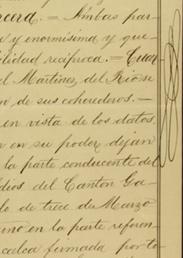 cera. = Ambas par
e y enormísima y que
ilidad recíproca. = Cuar
el Martinez del Rio se
n de sus coherederos. —
en vista de los datos
n en su poder dejan
la parte conducente del
dios del Canton Ga
lo de trece de Marzo
uno en la parte referen
calca firmada por to